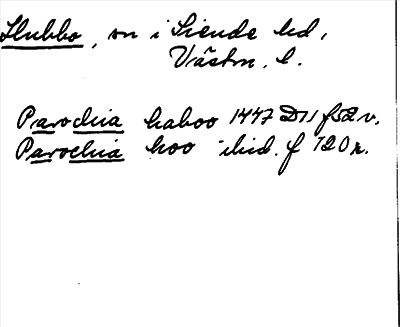 Hubbo, sn i Siende hd,
Västm. l.
Parochia haboo 1447 D11 f 52 v.
Parochia hoo ibid. f 120 r.